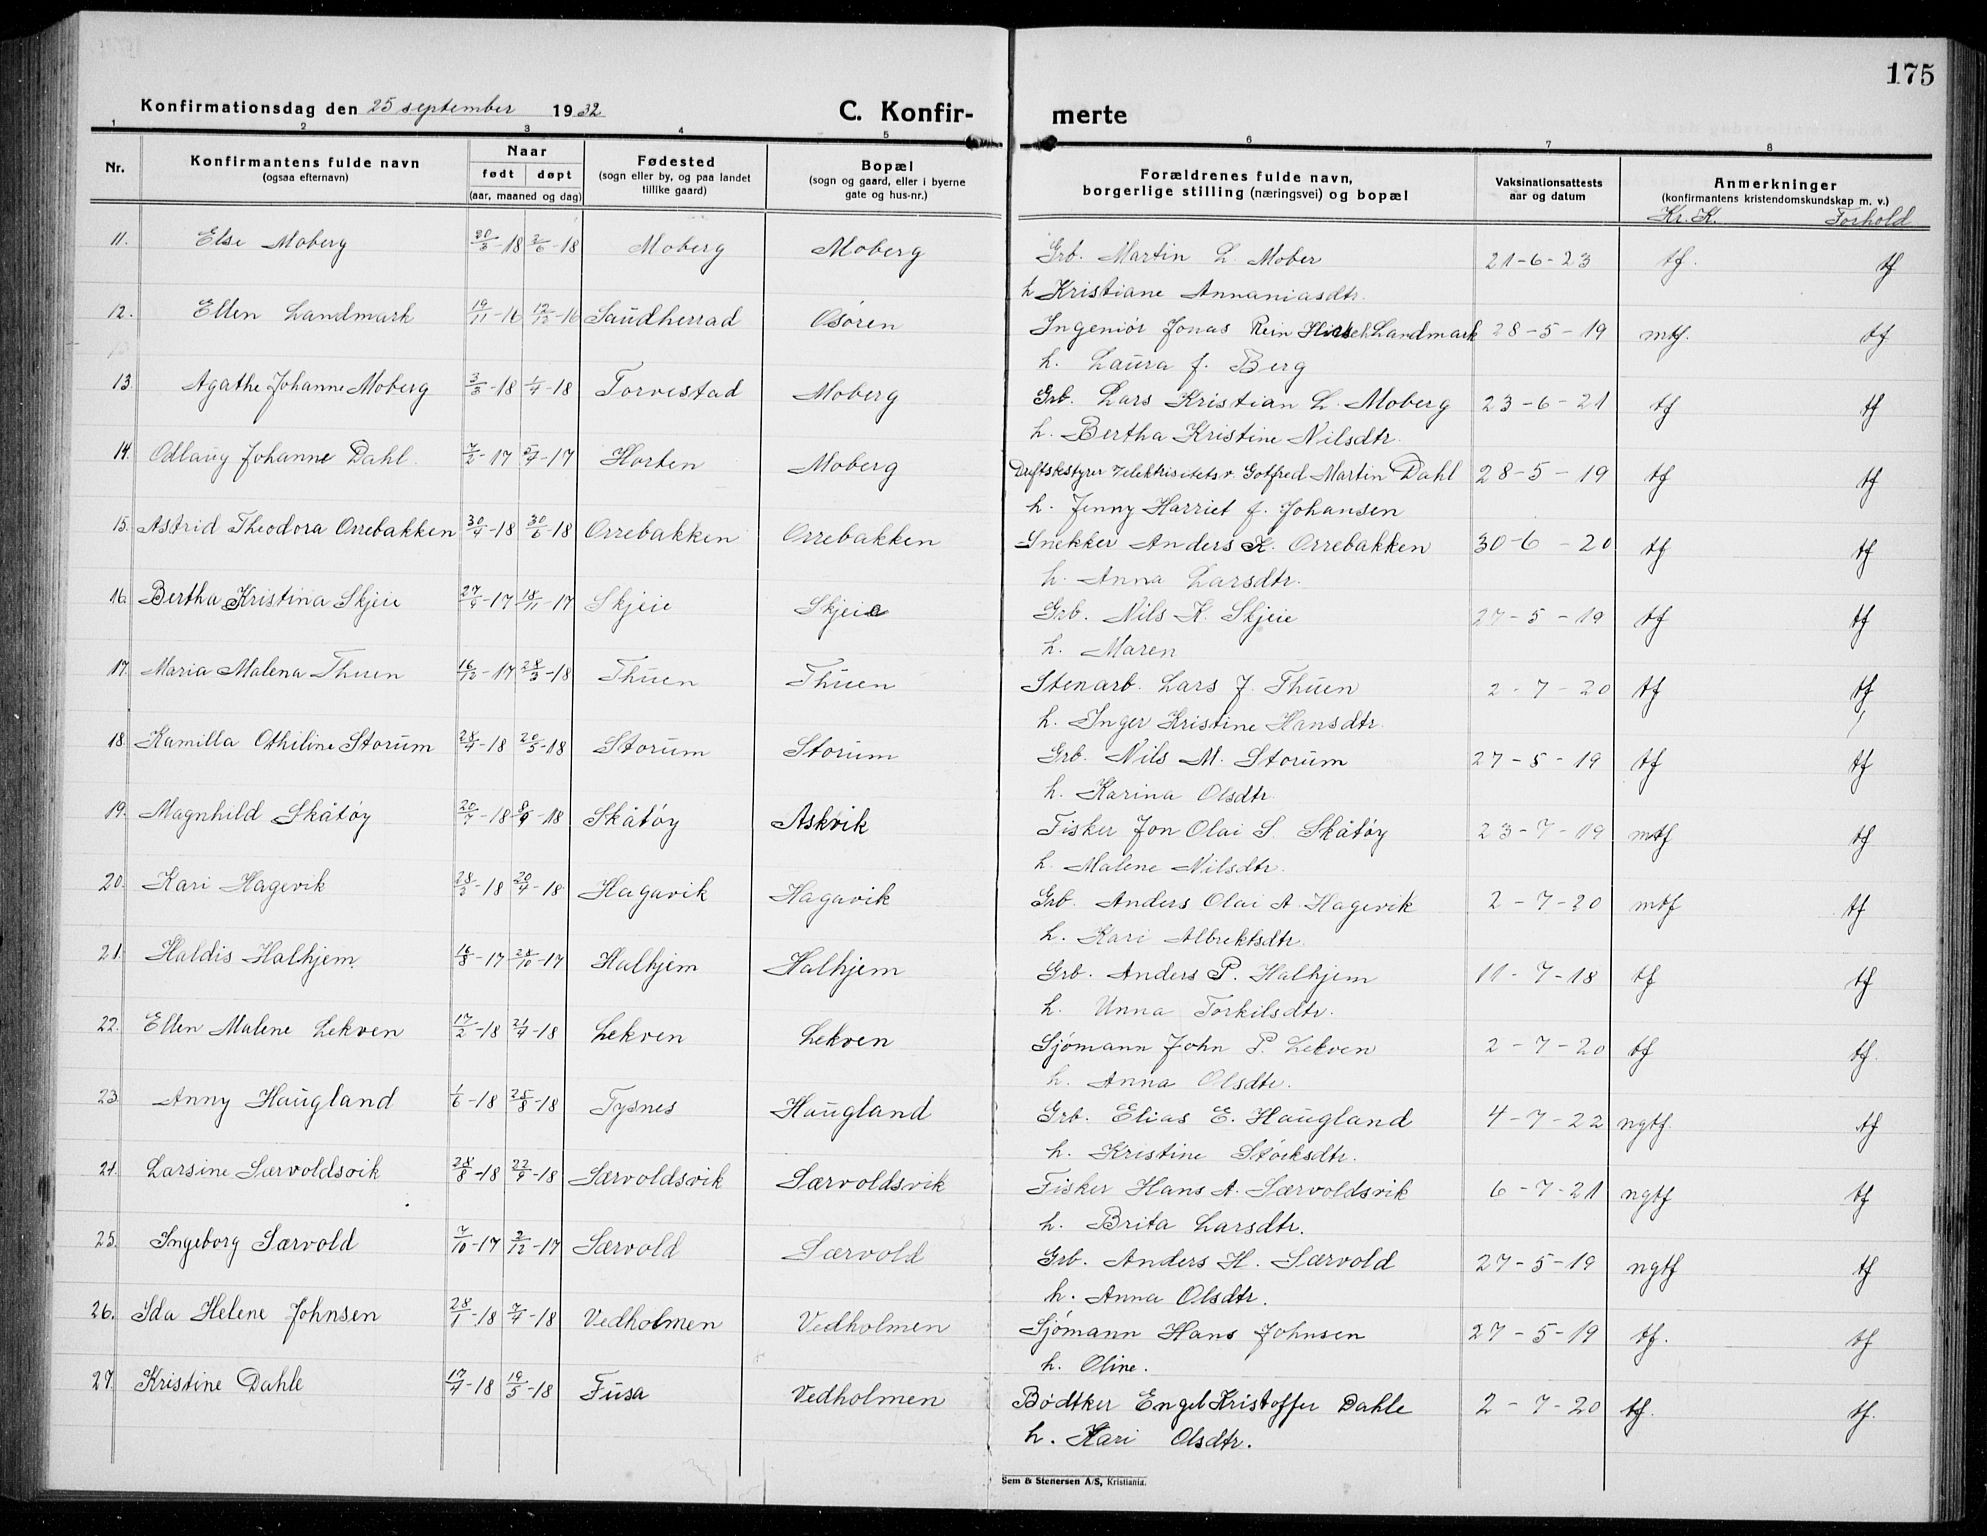 175
Konfirmationsdag den 25 september 1932 C. Konfir- merte
1 2 3 4 5 6 7 8
Nr. Konfirmantens fulde navn (ogsaa efternavn) Naar født døpt (aar, maaned og dag) Fødested (sogn eller by, og paa landet tillike gaard) Bopæl (sogn og gaard, eller i byerne gate og hus-nr.) Forældrenes fulde navn, borgerlige stilling (næringsvei) og bopæl Vaksinationsattests aar og datum Anmerkninger (konfirmantens kristendomskundskap m. v.)
Kr. K. Forhold
11. Else Moberg 20/3-18 2/6-18 Moberg Moberg Grb. Martin L. Mober 21-6-23 tf. tf
h Kristiane Annaniasdtr.
12. Ellen Landmark 19/11-16 12/12-16 Saudherrad Osøren Ingeniør Jonas Rein Landmark 28-5-19 mtf. tf
h. Laura f. Berg
13. Agathe Johanne Moberg 3/3-18 1/4-18 Torvestad Moberg Grb. Lars Kristian L. Moberg 23-6-21 tf tf
h. Bertha Kristine Nilsdtr.
14. Odlaug Johanne Dahl. 7/2-17 5/4-17 Horten Moberg Driftsbestyrer v elektrisitetsv. Gotfred Martin Dahl 28-5-19 tf tf
h. Jenny Harriet f. Johansen
15. Astrid Theodora Orrebakken 30/4-18 30/6-18 Orrebakken Orrebakken Snekker Anders K. Orrebakken 30-6-20 tf tf
h. Anna Larsdtr.
16. Bertha Kristina Skjeie 27/9-17 18/11-17 Skjeie Skjeie Grb. Nils K. Skjeie 27-5-19 tf tf
h. Maren
17. Maria Malena Thuen 16/12-17 28/3-18 Thuen Thuen Stenarb. Lars J. Thuen 2-7-20 tf tf
h. Inger Kristine Hansdtr.
18. Kamilla Othiline Storum 28/4-18 20/5-18 Storum Storum Grb. Nils M. Storum 27-5-19 tf tf
h. Karina Olsdtr.
19. Magnhild Skåtøy 20/7-18 8/9-18 Skåtøy Askvik Fisker Jon Olai S. Skåtøy 23-7-19 mtf tf
h. Malene Nilsdtr.
20. Kari Hagevik 28/3-18 20/4-18 Hagavik Hagavik Grb. Anders Olai A. Hagevik 2-7-20 mtf tf
h. Kari Albrektsdtr.
21. Haldis Halhjem. 16/8-17 28/10-17 Halhjem Halhjem Grb. Anders P. Halhjem 11-7-18 tf tf
h. Unna Torkilsdtr.
22. Ellen Malene Lekven 17/2-18 21/4-18 Lekven Lekven Sjømann John P. Lekven 2-7-20 tf tf.
h. Anna Olsdtr.
23. Anny Haugland 1/6-18 25/8-18 Tysnes Haugland Grb. Elias E. Haugland 4-7-22 ngtf. tf
h. Kristine Størksdtr.
24. Larsine Særvoldsvik 28/8-18 22/9-18 Særvoldsvik Særvoldsvik Fisker Hans A. Særvoldsvik 6-7-21 ngtf tf
h. Brita Larsdtr.
25. Ingeborg Særvold 7/10-17 2/12-17 Særvold Særvold Grb. Anders H. Særvold 27-5-19 ngtf tf
h. Anna Olsdtr.
26. Ida Helene Johnsen 28/1-18 7/4-18 Vedholmen Vedholmen Sjømann Hans Johnsen 27-5-19 tf. tf
h. Oline.
27. Kristine Dahle 17/4-18 19/5-18 Fusa Vedholmen Bødtker Engel Kristoffer Dahle 2-7-20 tf. tf.
h. Kari Olsdtr.
Sem & Stenersen A/S, Kristiania.